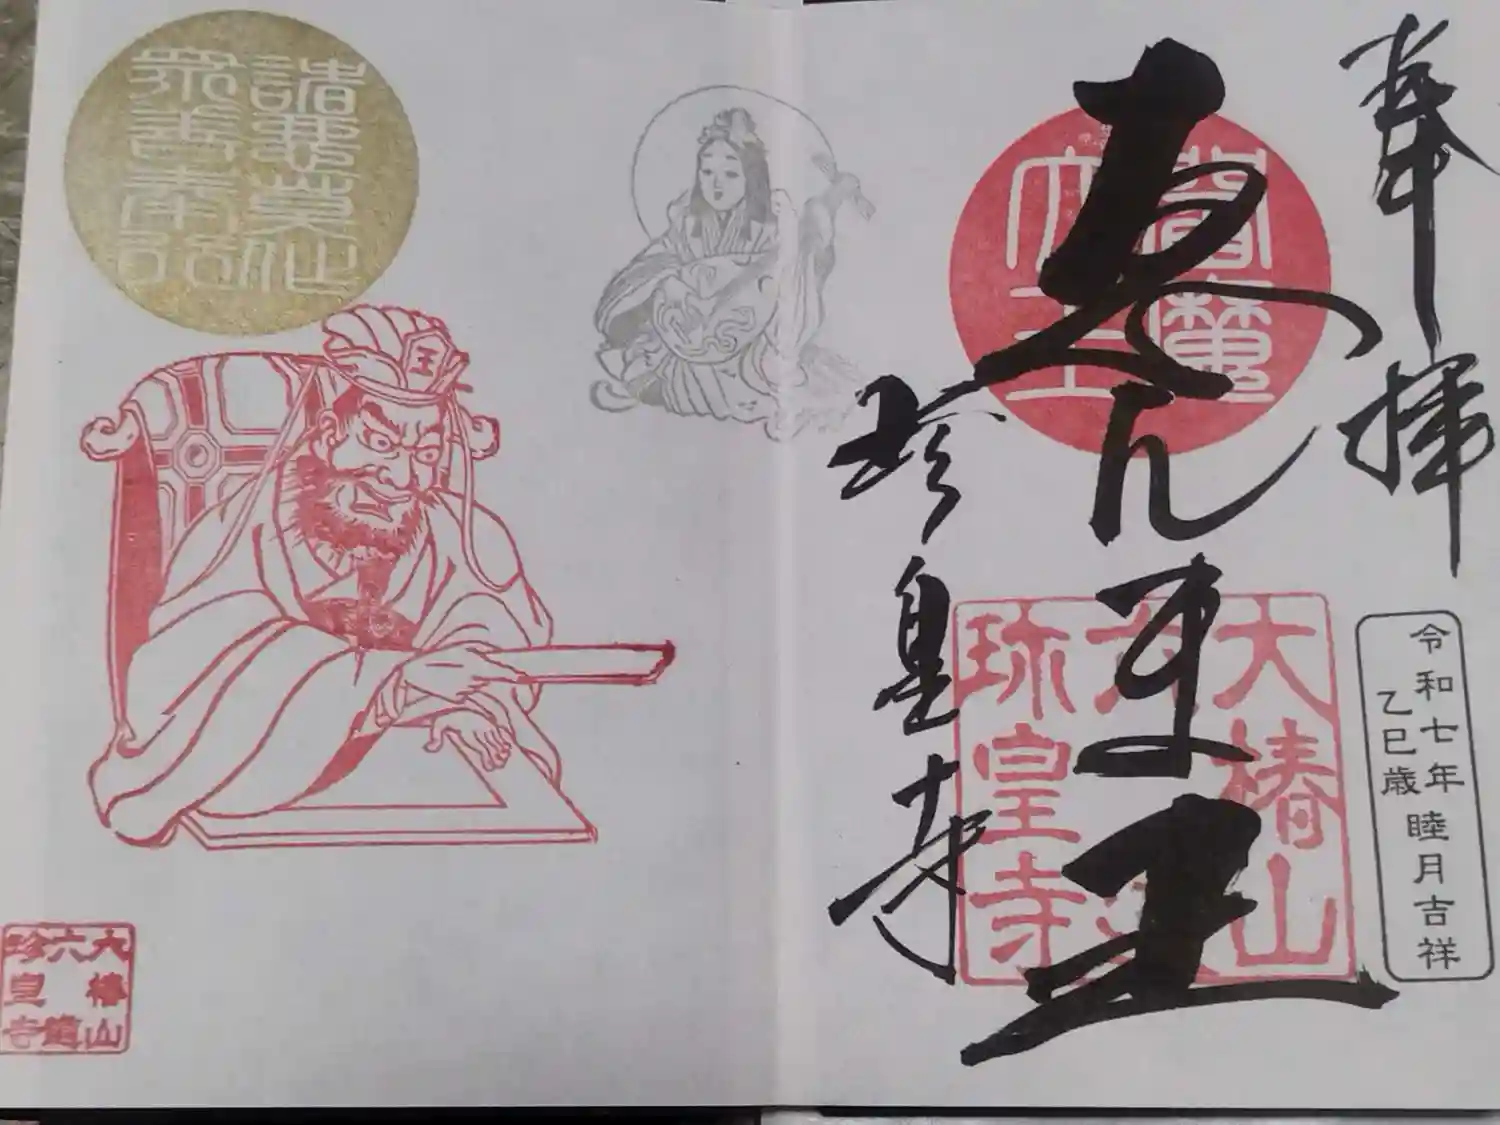 奉拝
令和七年睦月吉祥
乙巳歳
えんま王
珍皇寺
大椿山
六道
珍皇寺
諸悪莫作
衆善奉行
王
大椿山
六道
珍皇寺